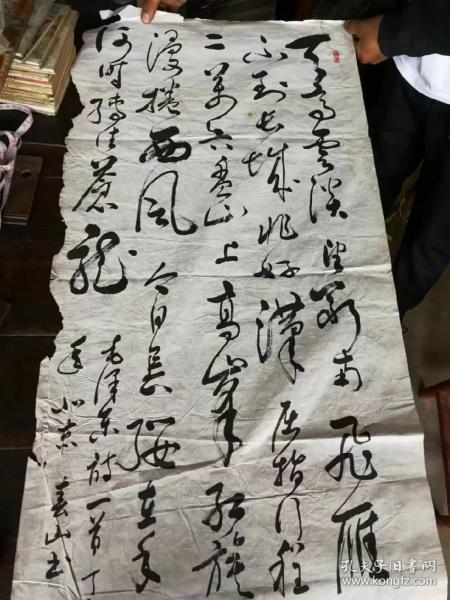 天高云淡望断南飞雁
不到长城非好漢屈指行程
二万六盘山上高峰红旗
漫捲西风今日长缨在手
何时缚住蒼龙
毛泽东诗一首丁
年北京春山书
孔夫子旧书网
www.kongfz.com